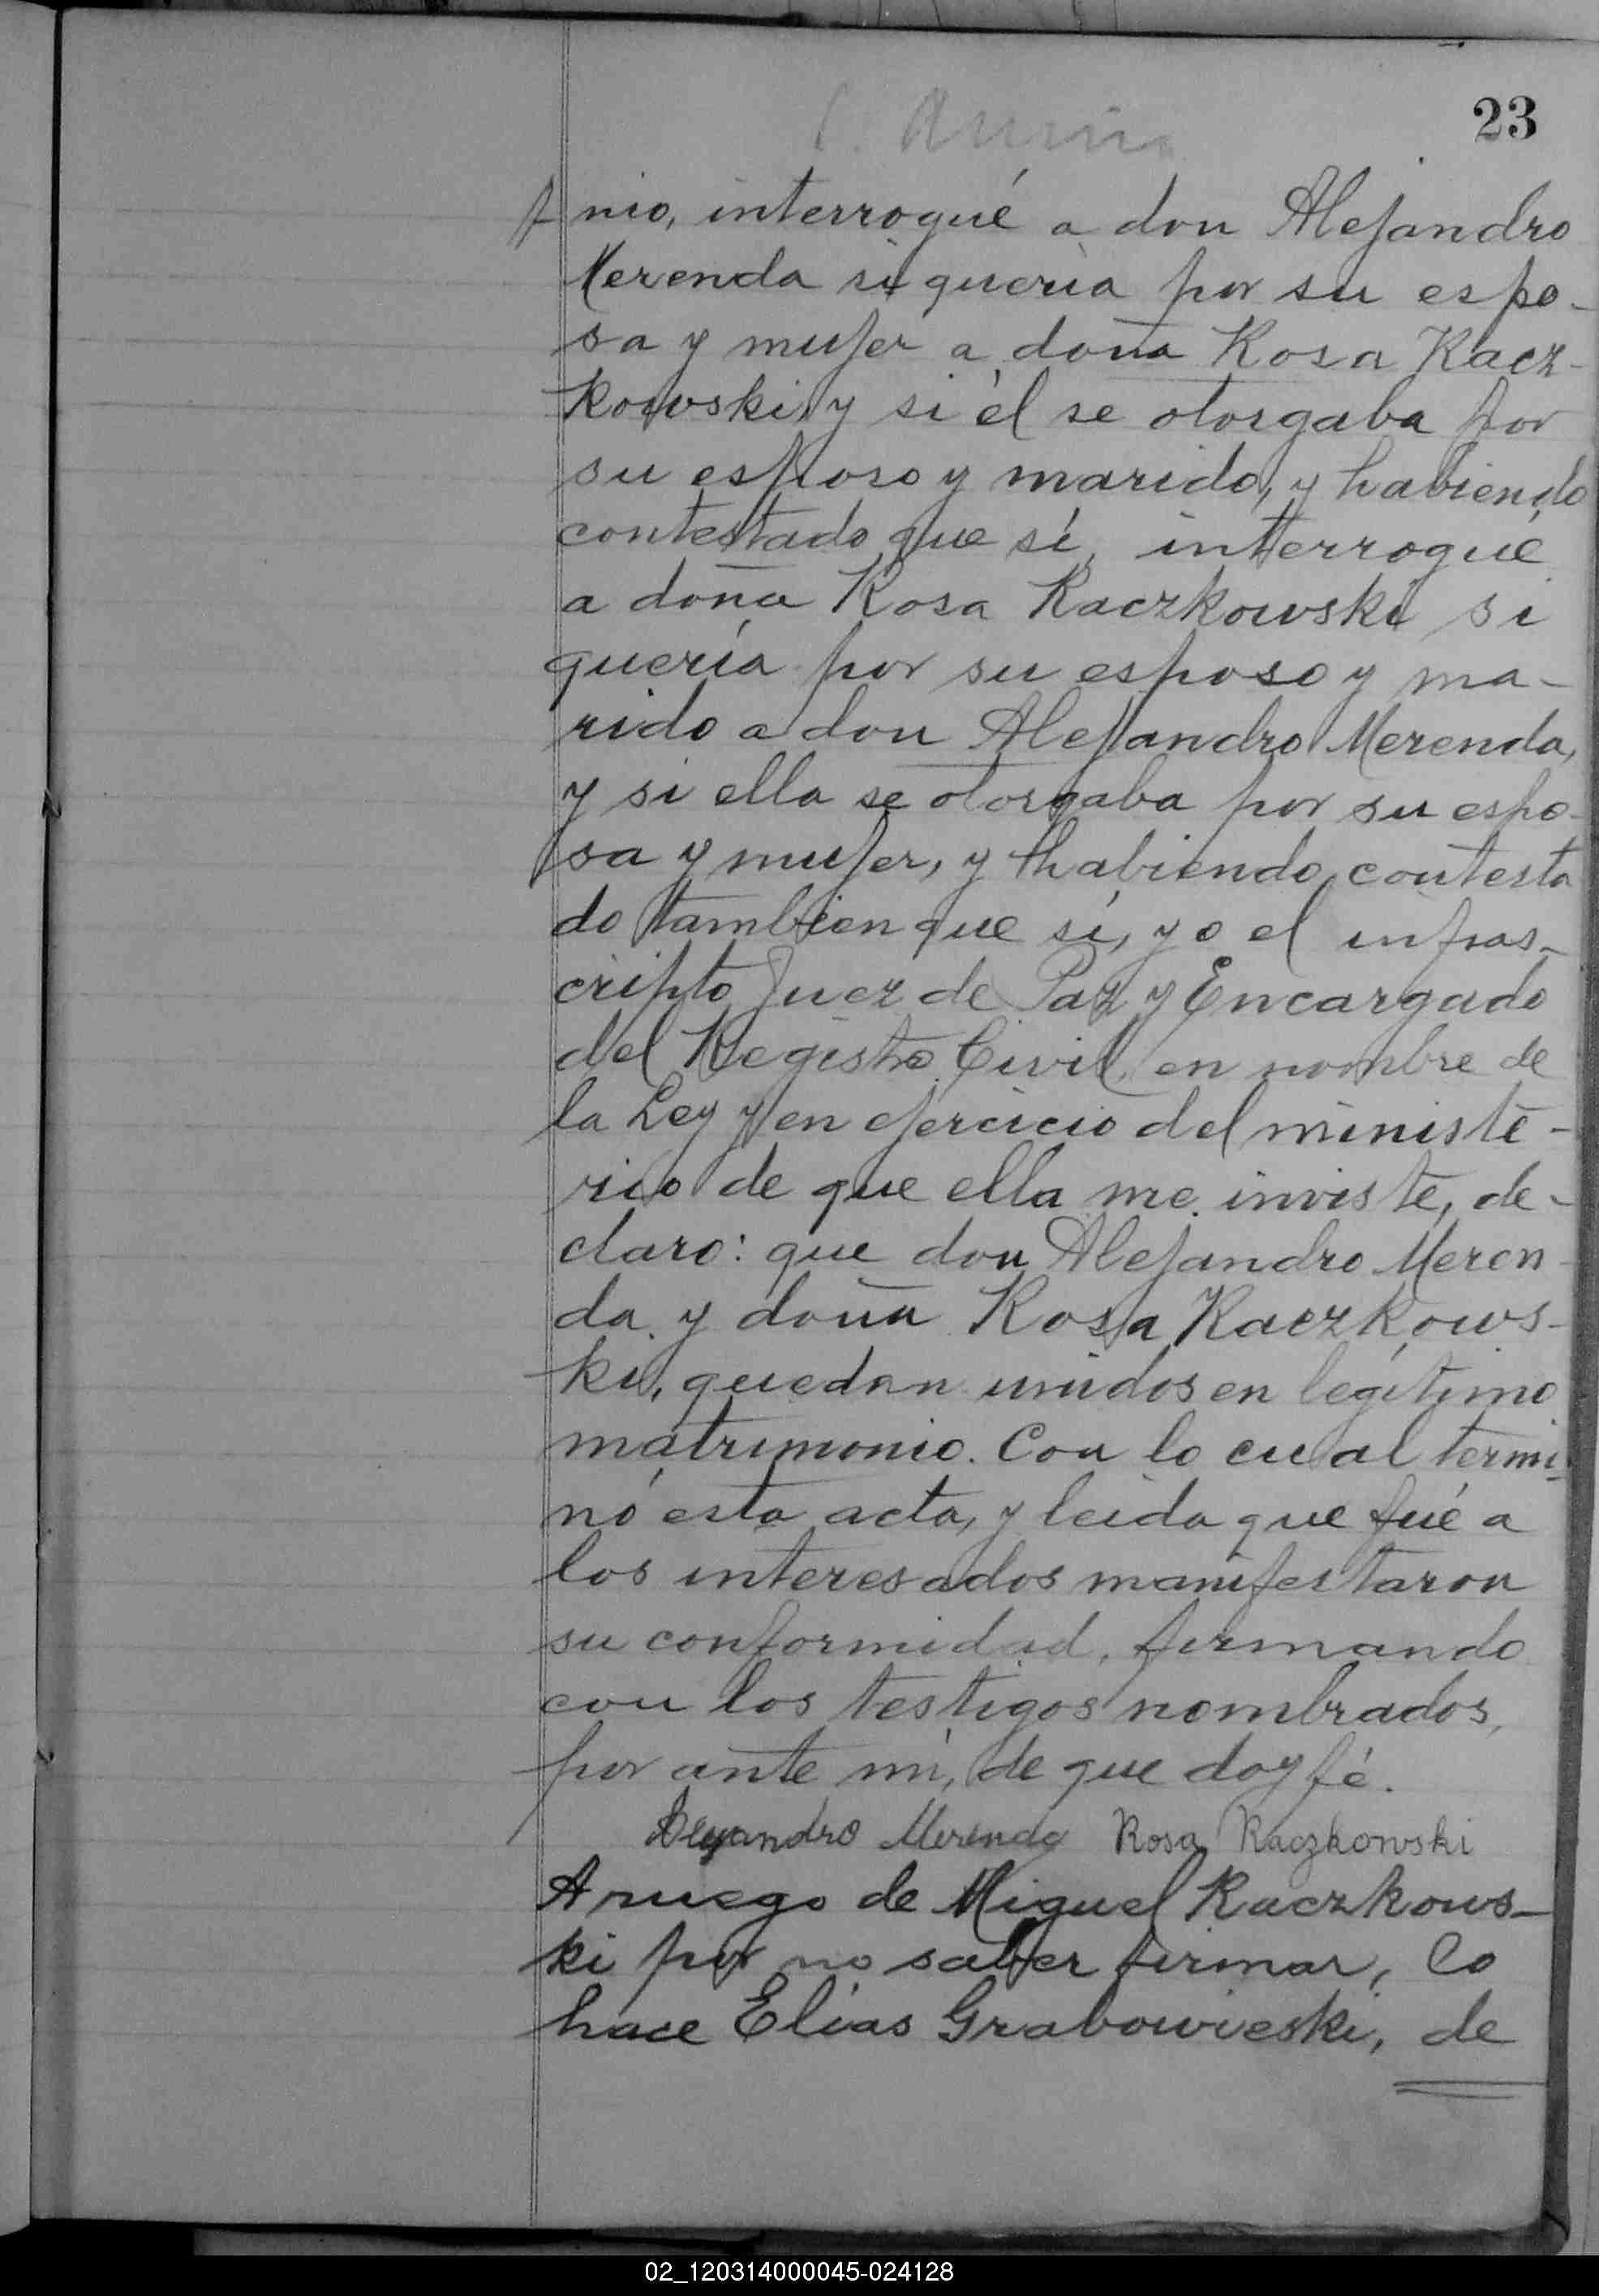 23
nio, interrogué a don Alejandro
Merenda si quería por su espo-
sa y mujer a doña Rosa Kacz-
kowski, y si él se otorgaba por
su esposo y marido, y habiendo
contestado que sí, interrogué
a doña Rosa Kaczkowski si
quería por su esposo y ma-
rido a don Alejandro Merenda,
y si ella se otorgaba por su espo-
sa y mujer, y habiendo contesta
do tambien que sí, yo el infras-
cripto Juez de Paz y Encargado
del Registro Civil en nombre de
la Ley y en ejercicio del ministe-
rio de que ella me inviste, de-
claro: que don Alejandro Meren-
da y doña Rosa Kaczkows-
ki, quedan unidos en legítimo
matrimonio. Con lo cual termi-
nó esta acta, y leida que fué a
los interesados manifestaron
su conformidad, firmando
con los testigos nombrados,
por ante mi, de que doy fé.
Alejandro Merenda Rosa Kaczkowski
A ruego de Miguel Kaczkows-
ki por no saber firmar, lo
hace Elias Grabowieski, de
02_120314000045-024128